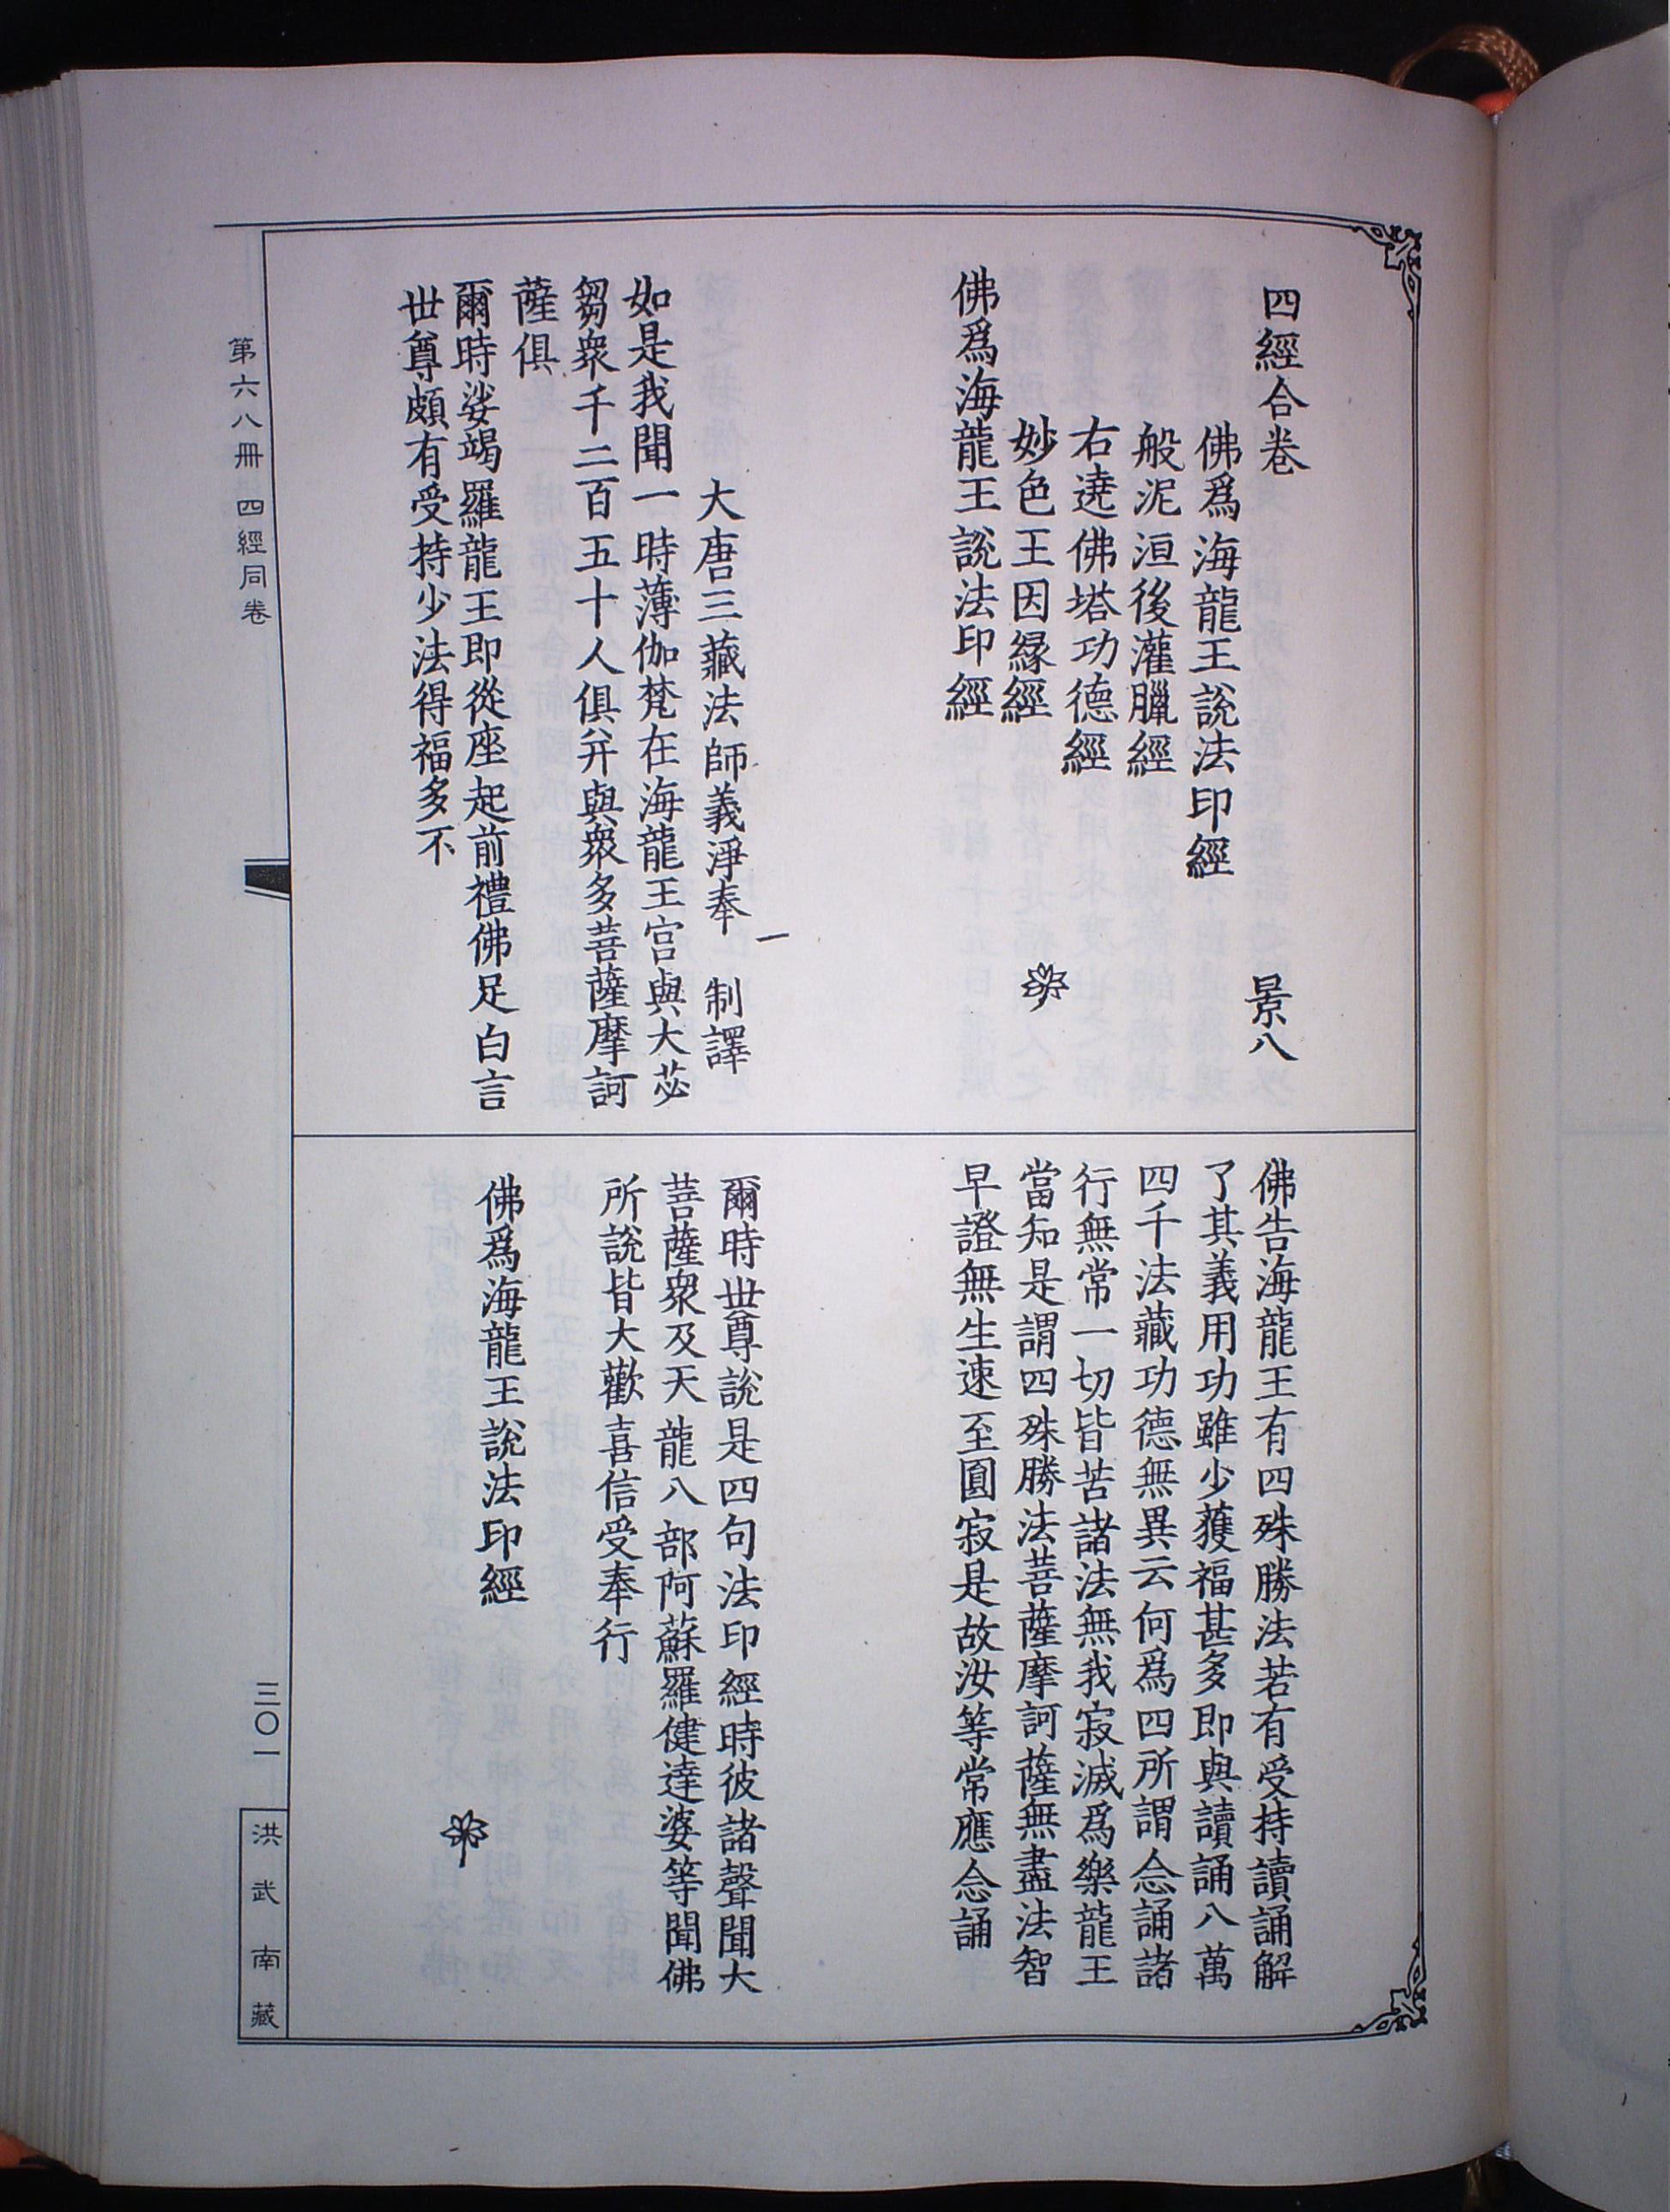 四經合卷 景八
佛爲海龍王說法印經
般泥洹後灌臘經
右遶佛塔功德經
妙色王因縁經
佛爲海龍王說法印經
一
大唐三藏法師義淨奉 制譯
如是我聞一時薄伽梵在海龍王宮與大苾
芻衆千二百五十人俱并與衆多菩薩摩訶
薩俱
爾時娑竭羅龍王即從座起前禮佛足白言
世尊頗有受持少法得福多不
佛告海龍王有四殊勝法若有受持讀誦解
了其義用功雖少獲福甚多即與讀誦八萬
四千法藏功德無異云何爲四所謂念誦諸
行無常一切皆苦諸法無我寂滅爲樂龍王
當知是謂四殊勝法菩薩摩訶薩無盡法智
早證無生速至圓寂是故汝等常應念誦
爾時世尊說是四句法印經時彼諸聲聞大
菩薩衆及天龍八部阿蘇羅健達婆等聞佛
所說皆大歡喜信受奉行
佛爲海龍王說法印經
第六八冊 四經同卷
三〇一
洪武南藏